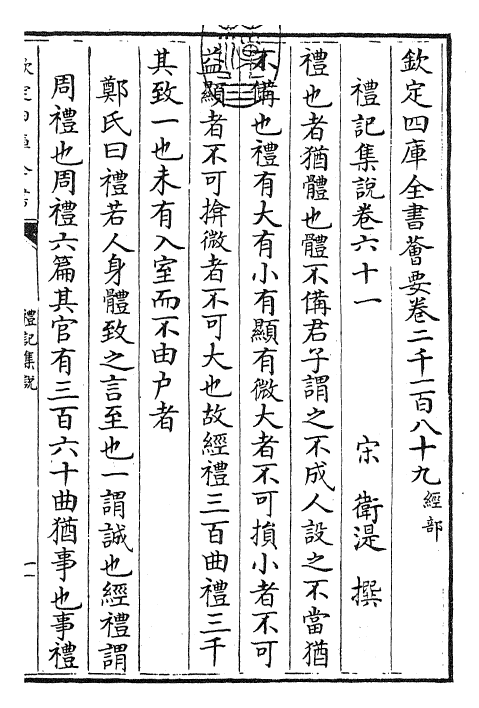 欽定四庫全書薈要卷二千一百八十九經部
禮記集說卷六十一
宋 衛湜 撰
禮也者猶體也體不備君子謂之不成人設之不當猶
不備也禮有大有小有顯有微大者不可損小者不可
益顯者不可揜微者不可大也故經禮三百曲禮三千
其致一也未有入室而不由户者
鄭氏曰禮若人身體致之言至也一謂誠也經禮謂
周禮也周禮六篇其官有三百六十曲猶事也事禮
禮記集說
一